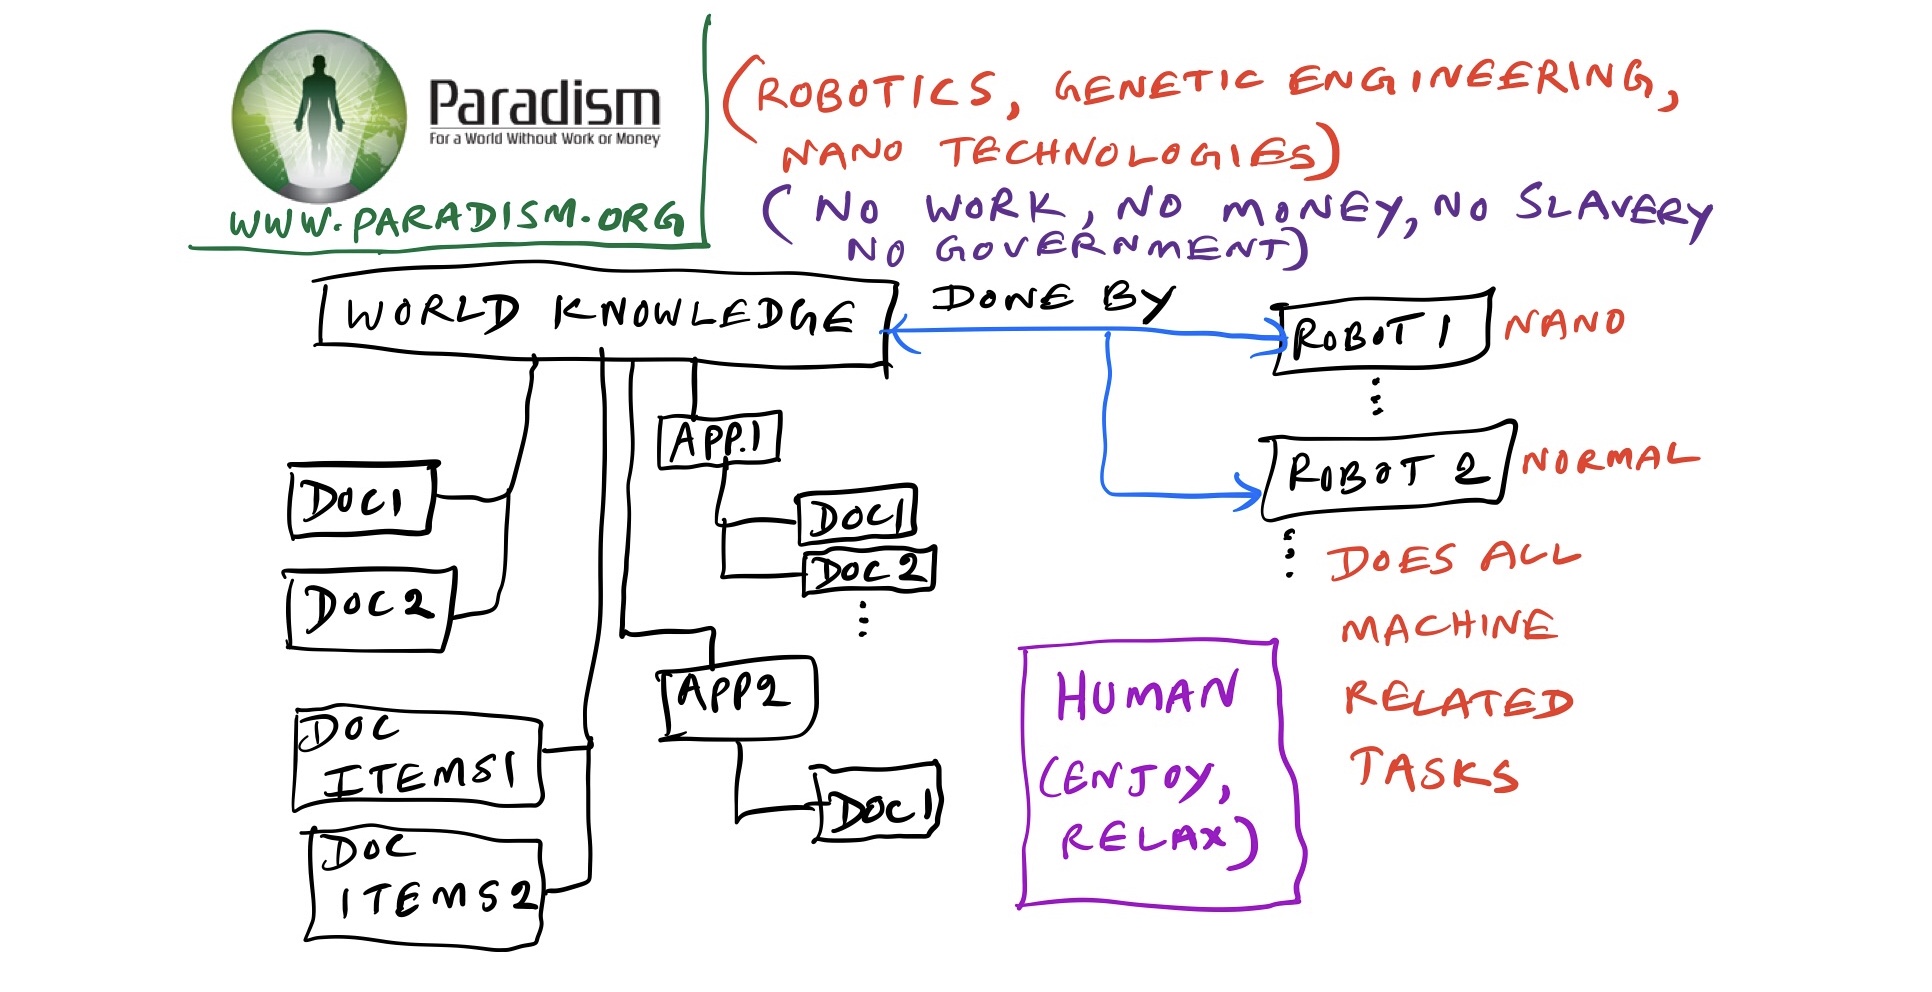 Paradism
For a World Without Work or Money
WWW.PARADISM.ORG
(ROBOTICS, GENETIC ENGINEERING,
NANO TECHNOLOGIES)
(NO WORK, NO MONEY, NO SLAVERY
NO GOVERNMENT)
WORLD KNOWLEDGE
DONE BY
ROBOT 1
NANO
ROBOT 2
NORMAL
DOES ALL
MACHINE
RELATED
TASKS
APP.1
DOC1
DOC2
DOC1
DOC2
APP2
DOC1
DOC
ITEMS1
DOC
ITEMS2
HUMAN
(ENJOY,
RELAX)